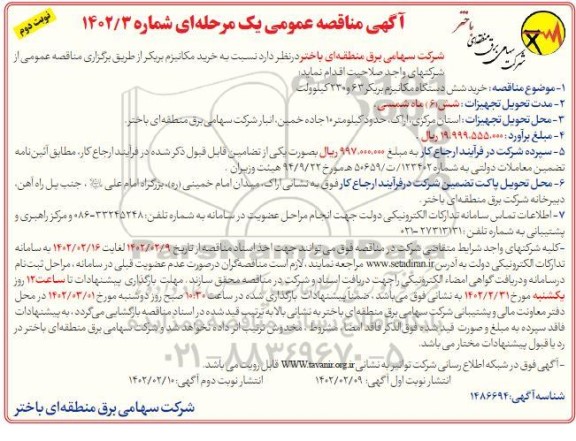 نوبت دوم
آگهی مناقصه عمومی یک مرحله‌ای شماره ۱۴۰۲/۳
باختر
شرکت سهامی برق منطقه‌ای
شرکت سهامی برق منطقه‌ای باختر درنظر دارد نسبت به خرید مکانیزم بریکر از طریق برگزاری مناقصه عمومی از
شرکتهای واجد صلاحیت اقدام نماید:
۱- موضوع مناقصه: خرید شش دستگاه مکانیزم بریکر ۶۳ و ۲۳۰ کیلوولت
۲- مدت تحویل تجهیزات: شش(۶) ماه شمسی
۳- محل تحویل تجهیزات: استان مرکزی، اراک، حدود کیلومتر ۱۰ جاده خمین، انبار شرکت سهامی برق منطقه‌ای باختر.
۴- مبلغ برآورد: ۱۹,۹۹۹,۵۵۵,۰۰۰ ریال
۵- سپرده شرکت در فرآیند ارجاع کار به مبلغ ۹۹۷,۰۰۰,۰۰۰ ریال بصورت یکی از تضامین قابل قبول ذکر شده در فرآیند ارجاع کار، مطابق آئین‌نامه
تضمین معاملات دولتی به شماره ۱۲۳۴۰۲/ت۵۰۶۵۹ه مورخ ۹۴/۹/۲۲ هیئت وزیران.
۶- محل تحویل پاکت تضمین شرکت درفرآیند ارجاع کار فوق به نشانی اراک، میدان امام خمینی (ره)، بزرگراه امام علی، جنب پل راه آهن،
دبیرخانه شرکت برق منطقه‌ای باختر.
۷- اطلاعات تماس سامانه تدارکات الکترونیکی دولت جهت انجام مراحل عضویت در سامانه به شماره تلفن: ۳۳۲۴۵۲۴۸-۰۸۶ و مرکز راهبری و
پشتیبانی به شماره تلفن: ۲۷۳۱۳۱۳۱-۰۲۱
-کلیه شرکتهای واجد شرایط متقاضی شرکت در مناقصه فوق می‌توانند جهت اخذ اسناد مناقصه از تاریخ ۱۴۰۲/۰۲/۹ لغایت ۱۴۰۲/۰۲/۱۶ به سامانه
تدارکات الکترونیکی دولت به آدرس www.setadiran.ir مراجعه نمایند، لازم است مناقصه‌گران درصورت عدم عضویت قبلی در سامانه، مراحل ثبت‌نام
درسامانه ودریافت گواهی امضاء الکترونیکی راجهت دریافت اسناد و شرکت در مناقصه محقق سازند. مهلت بارگذاری پیشنهادات تا ساعت ۱۲ روز
یکشنبه مورخ ۱۴۰۲/۲/۳۱ به نشانی فوق می‌باشد، ضمناً پیشنهادات بارگذاری شده در ساعت ۱۰:۳۰ صبح روز دوشنبه مورخ ۱۴۰۲/۰۳/۰۱ در محل
دفتر معاونت مالی و پشتیبانی شرکت سهامی برق منطقه‌ای باختر به نشانی بالا به ترتیب قید شده در اسناد مناقصه بازگشایی می‌گردد، به پیشنهادات
فاقد سپرده به مبلغ و صورت قید شده فوق الذکر، فاقد امضاء، مشروط، مخدوش ترتیب اثر داده نخواهد شد و شرکت سهامی برق منطقه‌ای باختر در
رد یا قبول پیشنهادات مختار می‌باشد.
-آگهی فوق در شبکه اطلاع رسانی شرکت توانیر به نشانی www.tavanir.org.ir قابل رویت می‌باشد.
انتشار نوبت اول آگهی: ۱۴۰۲/۰۲/۰۹ انتشار نوبت دوم آگهی: ۱۴۰۲/۰۲/۱۰
شناسه آگهی: ۱۴۸۶۶۹۴
شرکت سهامی برق منطقه‌ای باختر
۰۲۱-۸۸۳۴۹۶۷۰-۵